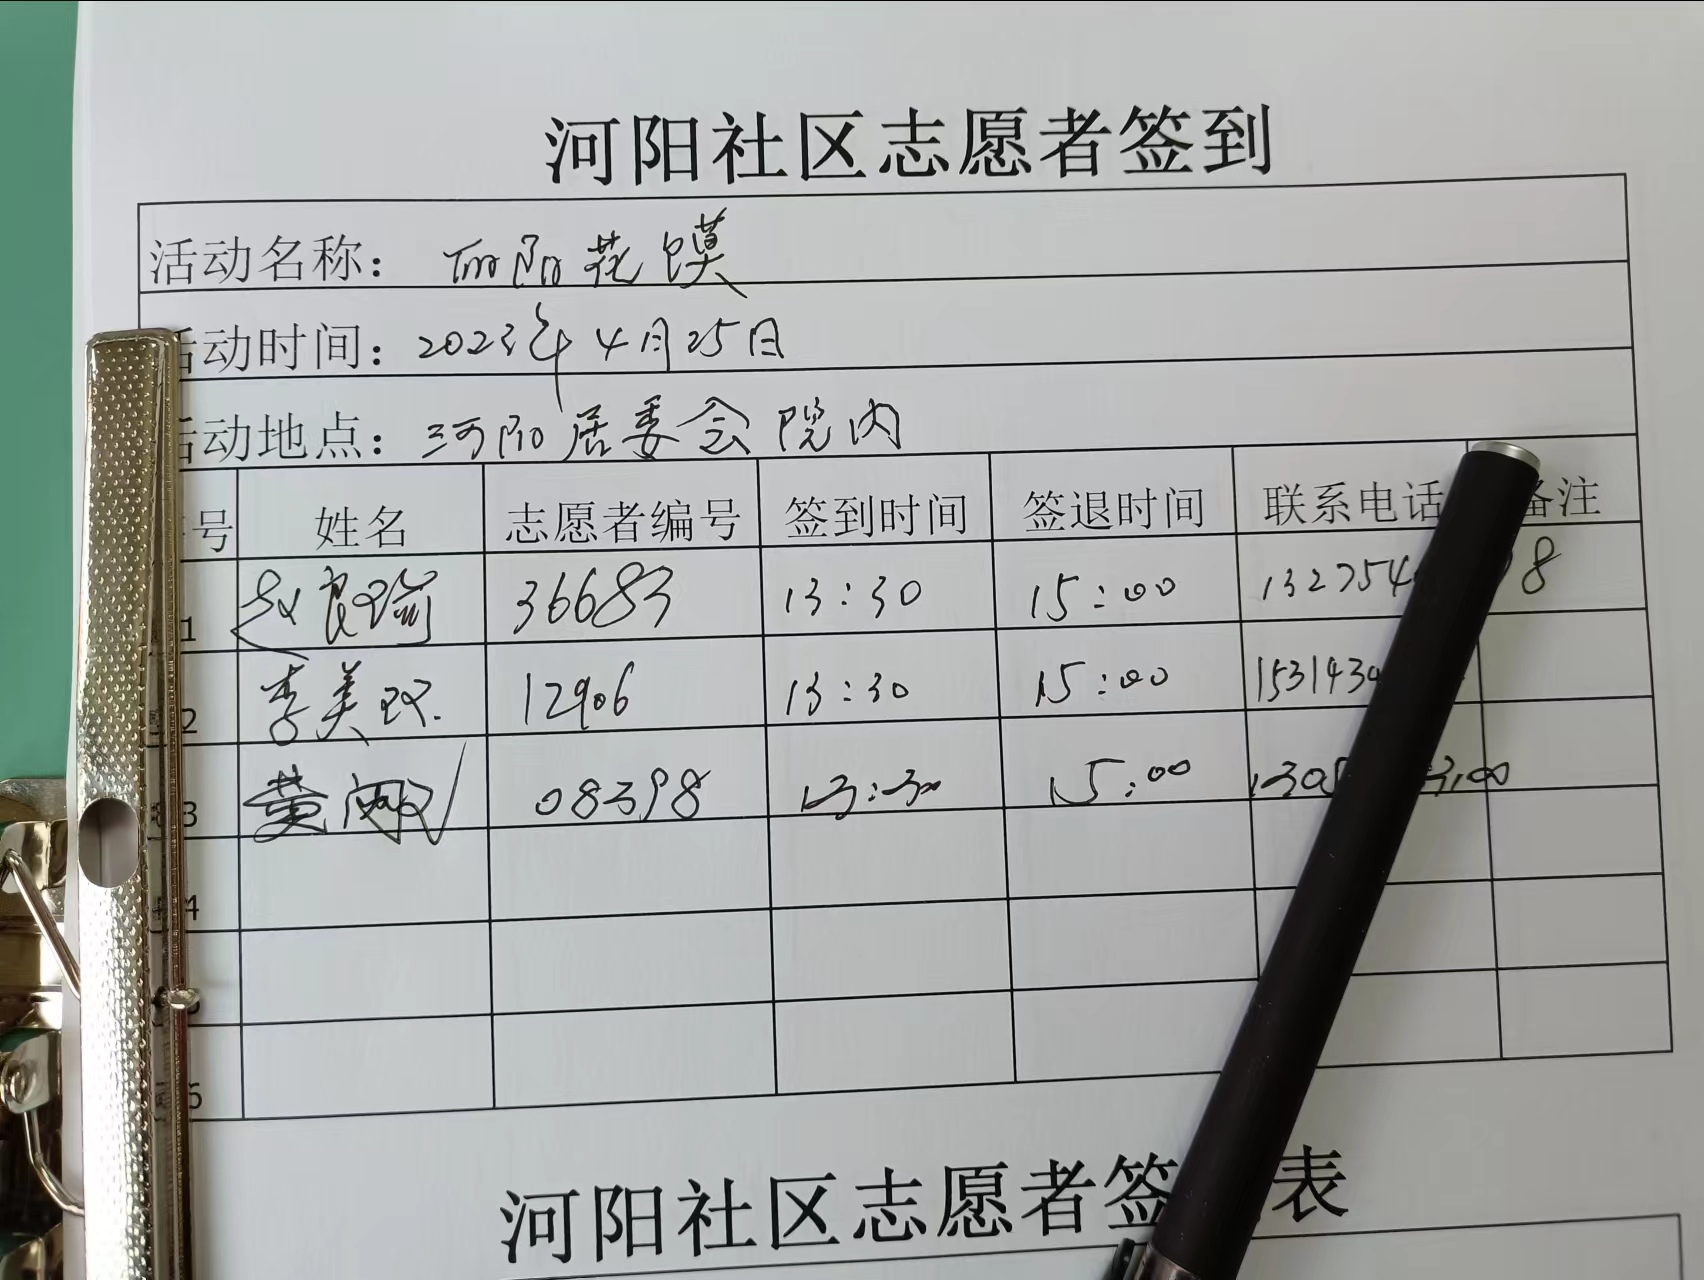 河阳社区志愿者签到
活动名称： 丽阳花馍
活动时间：2023年4月25日
活动地点：河阳居委会院内
号 姓名 志愿者编号 签到时间 签退时间 联系电话 备注
1 赵良瑜 36683 13:30 15:00 132754 8
2 李美玖 12906 13:30 15:00 1531434
3 黄 08398 13:30 15:00 1305 3100
4
5
河阳社区志愿者签 表